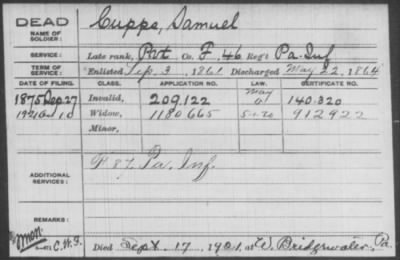 DEAD
NAME OF SOLDIER: Cupps, Samuel
SERVICE: Late rank, Pvt Co. F, 46 Reg't Pa. Inf
TERM OF SERVICE: Enlisted Sep. 3, 1861 Discharged May 22, 1864
DATE OF FILING. CLASS. APPLICATION NO. LAW. CERTIFICATE NO.
1875 Sep 27 Invalid, 209,122 140.320
Widow, 1180665 912922
Minor,
ADDITIONAL SERVICES: F 87 Pa. Inf.
REMARKS:
C.W.F.
Died Sept. 17, 1921, at W. Bridgewater, Pa.